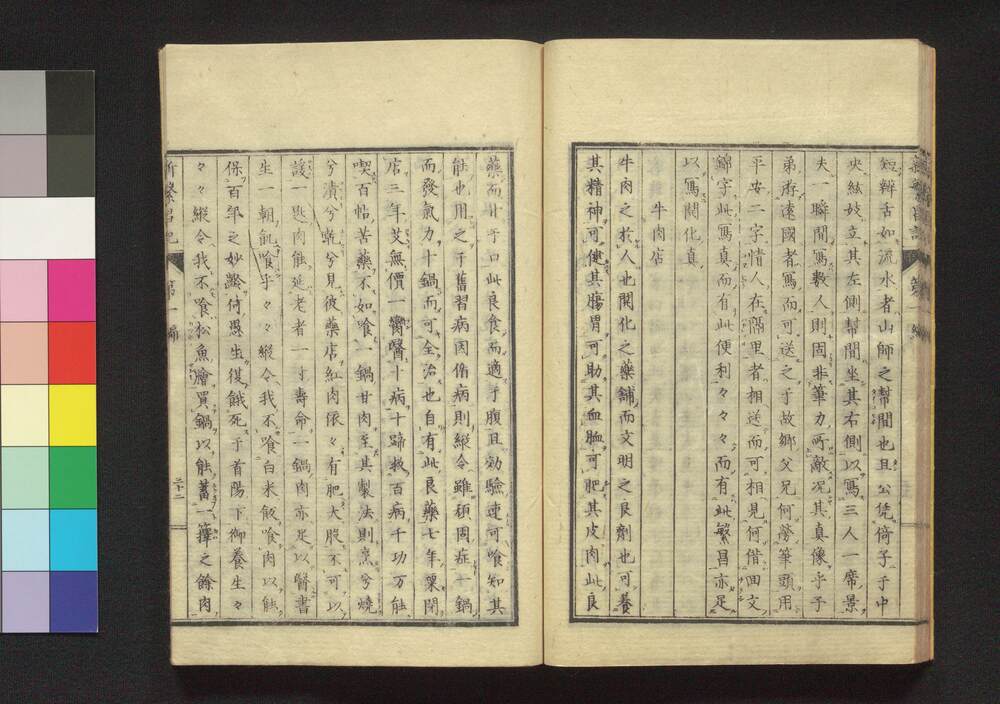 短辯舌如流水者山師之幇間也且公凭倚子于中
央絃妓立其左側幇間坐其右側以寫三人一席景
夫一瞬間寫數人則固非筆力所敵况其真像乎子
弟游遠國者寫而可送之于故鄉父兄何勞筆頭用
平安二字情人在隔里者相送而可相見何借回文
錦字此寫真而有此便利々々々而有此繁昌亦足
以寫開化真
牛肉店
牛肉之於人也開化之藥舖而文明之良劑也可養
其精神可健其腸胃可助其血脉可肥其皮肉此良
藥而甘于口此良食而適于腹且効驗速可喰知其
能也用之于舊習病因循病則縱令雖頑固症一鍋
而發氣力十鍋而可全治也自有此良藥七年葉閉
店三年艾無價一臠醫十病十蹄救百病千功万能
喫百帖苦藥不如喰一鍋甘肉至其製法則烹兮燒
兮漬兮羮兮見彼藥店紅肉依々有肥大股不可以
諼一匙肉能延老者一寸壽命一鍋肉亦足以醫書
生一朝飢喰乎々々縱令我不喰白米飯喰肉以能
保百年之妙齡何愚生復餓死于首陽下御養生々
々々縱令我不喰松魚膾買鍋以能蓄一簞之餘肉
新繁昌記
第一編
二十二